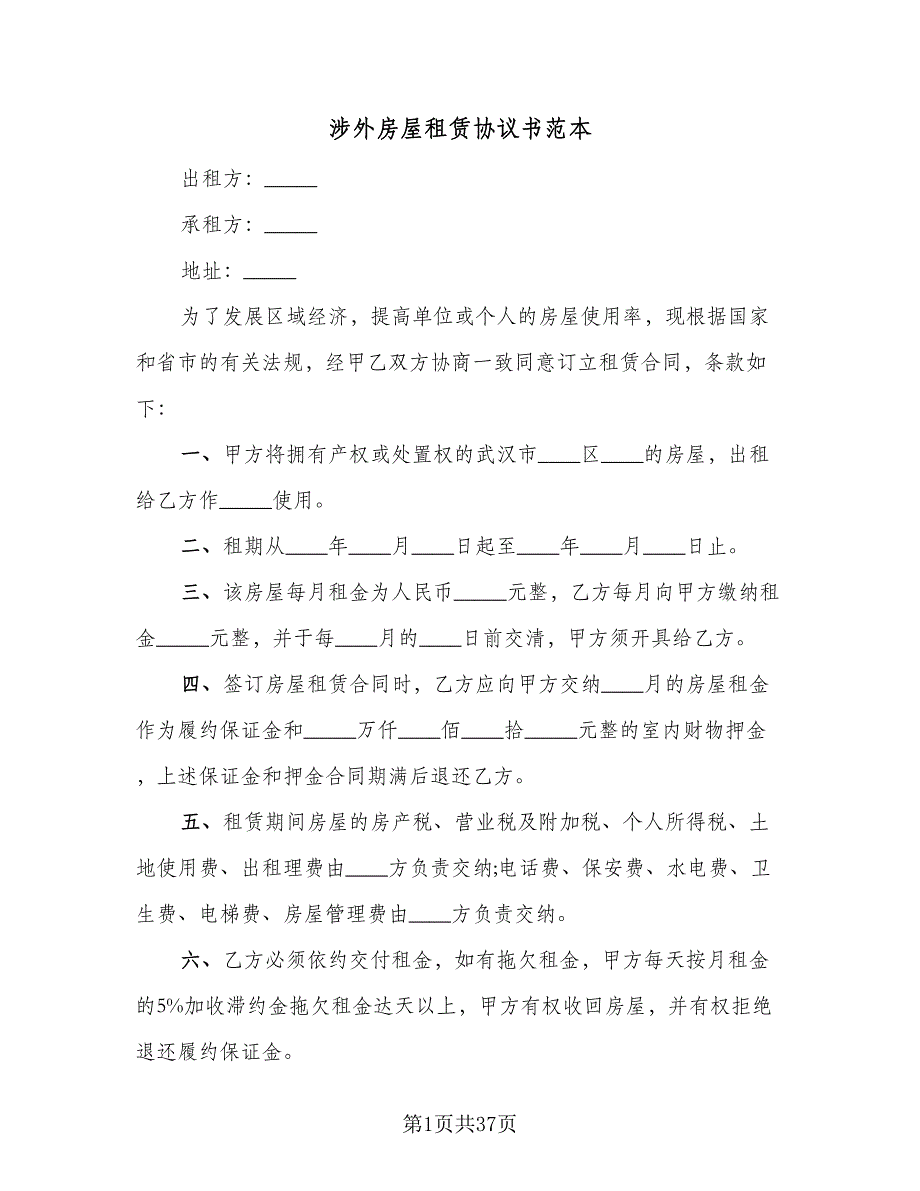 涉外房屋租赁协议书范本
出租方：_____
承租方：_____
地址：_____
为了发展区域经济，提高单位或个人的房屋使用率，现根据国家
和省市的有关法规，经甲乙双方协商一致同意订立租赁合同，条款如
下：
一、甲方将拥有产权或处置权的武汉市____区____的房屋，出租
给乙方作_____使用。
二、租期从____年____月____日起至____年____月____日止。
三、该房屋每月租金为人民币_____元整，乙方每月向甲方缴纳租
金_____元整，并于每____月的____日前交清，甲方须开具给乙方。
四、签订房屋租赁合同时，乙方应向甲方交纳____月的房屋租金
作为履约保证金和_____万仟____佰____拾_____元整的室内财物押金
，上述保证金和押金合同期满后退还乙方。
五、租赁期间房屋的房产税、营业税及附加税、个人所得税、土
地使用费、出租理费由____方负责交纳;电话费、保安费、水电费、卫
生费、电梯费、房屋管理费由____方负责交纳。
六、乙方必须依约交付租金，如有拖欠租金，甲方每天按月租金
的5%加收滞约金拖欠租金达天以上，甲方有权收回房屋，并有权拒绝
退还履约保证金。
第1页共37页